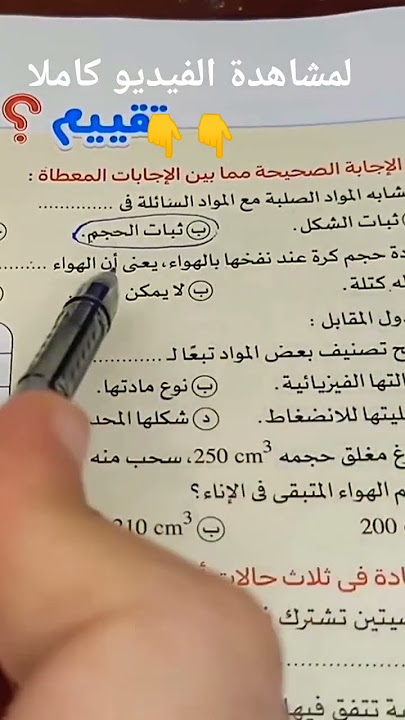 لمشاهدة الفيديو كاملا
تقييم ؟
الإجابة الصحيحة مما بين الإجابات المعطاة :
شابه المواد الصلبة مع المواد السائلة فى ..............
ثبات الشكل. ب ثبات الحجم.
دة حجم كرة عند نفخها بالهواء، يعنى أن الهواء ..........
له كتلة. ب لا يمكن
ول المقابل :
ح تصنيف بعض المواد تبعًا لـ ..............
التها الفيزيائية. ب نوع مادتها.
ليتها للانضغاط. د شكلها المحد
غ مغلق حجمه 250 cm³، سحب منه
م الهواء المتبقى فى الإناء؟
200 ب 210 cm³
ادة فى ثلاث حالات
سيتين تشترك
ة تتفق فيها